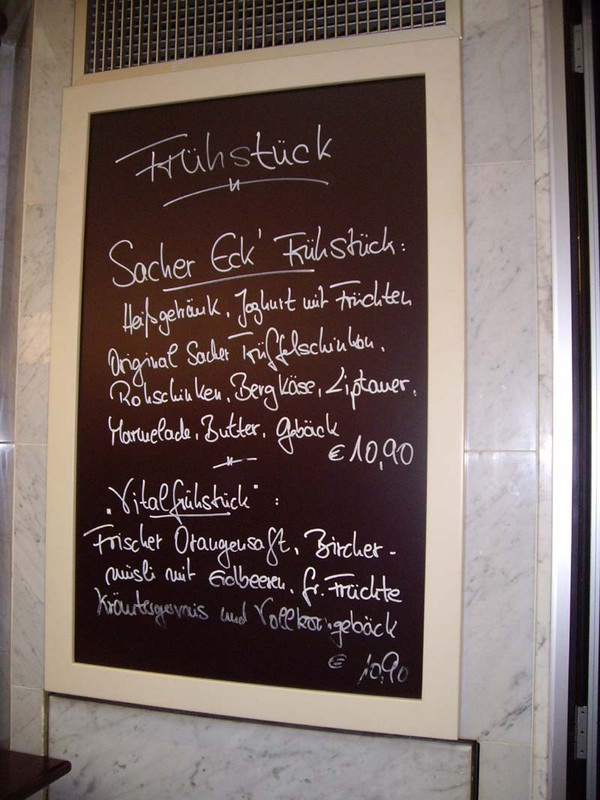 Frühstück
Sacher Eck' Frühstück:
Heißgetränk, Joghurt mit Früchten
Original Sacher Trüffelschinken,
Rohschinken, Bergkäse, Liptauer,
Marmelade, Butter, Gebäck
€ 10,90
„Vitalfrühstück" :
Frischer Orangensaft, Bircher-
müsli mit Erdbeeren, fr. Früchte
Kräutergervais und Vollkorngebäck
€ 10,90